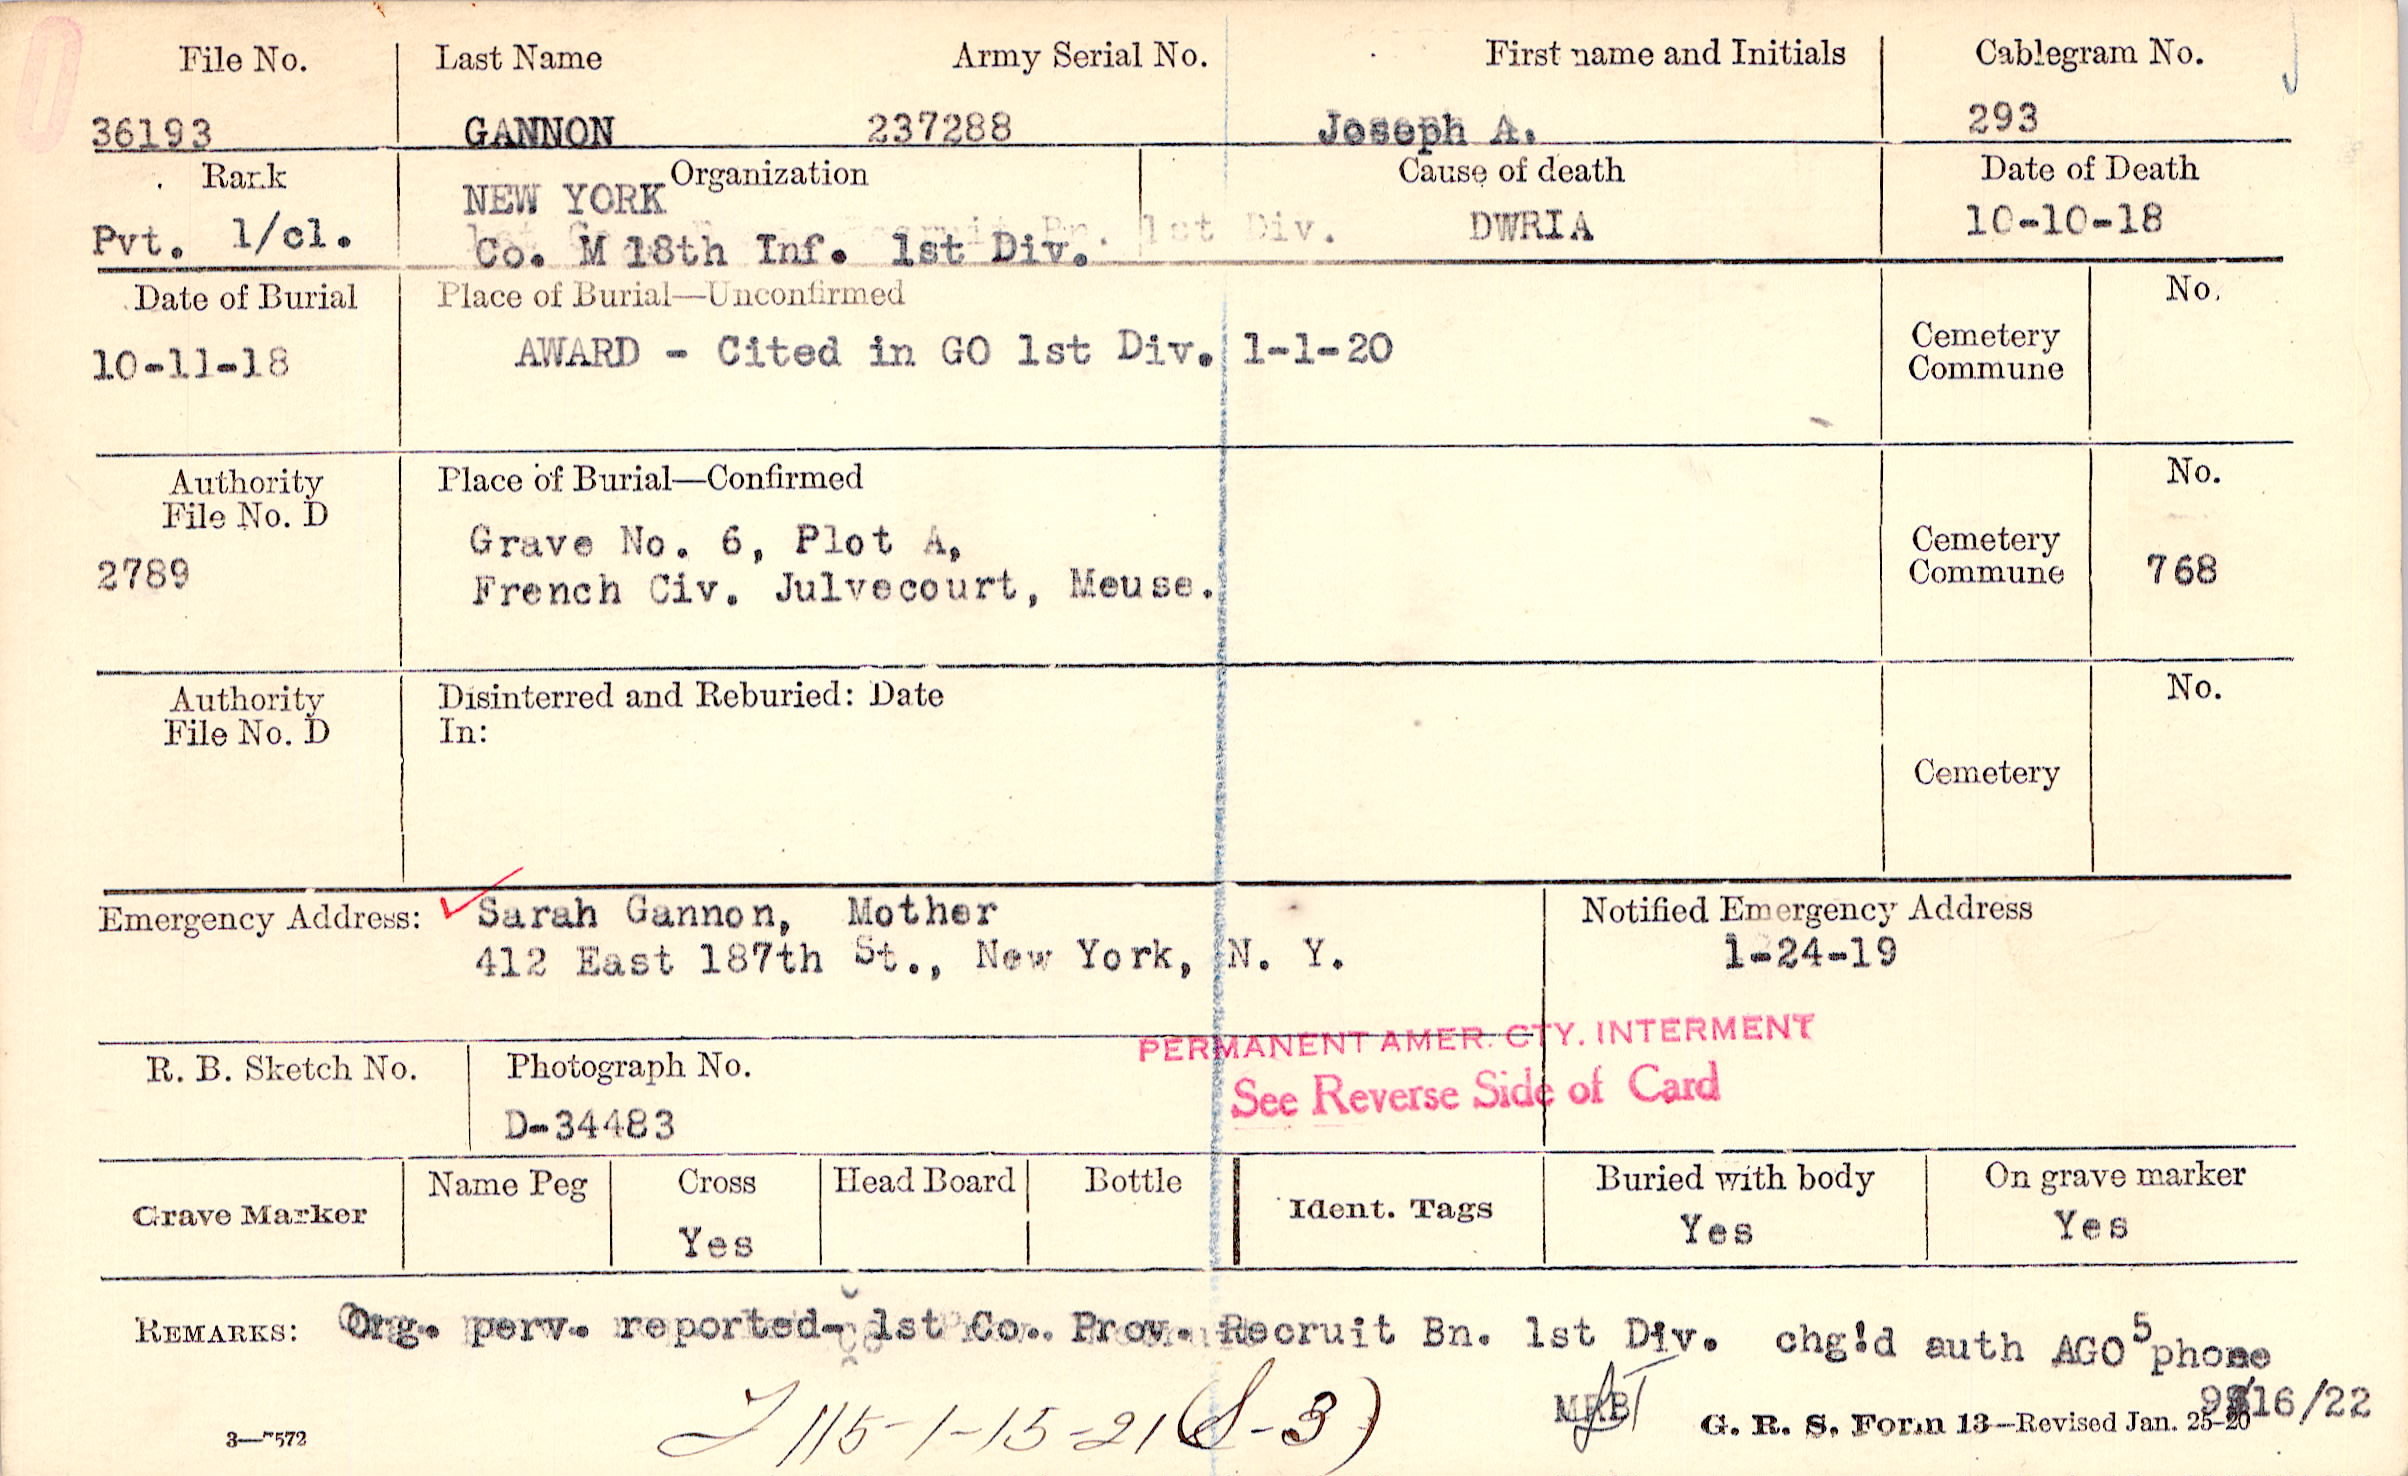 File No.
Last Name
Army Serial No.
First name and Initials
Cablegram No.
36193
GANNON
237288
Joseph A.
293
Rank
Organization
Cause of death
Date of Death
Pvt. 1/cl.
NEW YORK
Co. M 18th Inf. 1st Div.
DWRIA
10-10-18
Date of Burial
Place of Burial—Unconfirmed
No.
10-11-18
AWARD - Cited in GO 1st Div. 1-1-20
Cemetery
Commune
Authority
File No. D
2789
Place of Burial—Confirmed
Grave No. 6, Plot A,
French Civ. Julvecourt, Meuse.
Cemetery
Commune
No.
768
Authority
File No. D
Disinterred and Reburied: Date
In:
Cemetery
No.
Emergency Address:
Sarah Gannon, Mother
412 East 187th St., New York, N. Y.
Notified Emergency Address
1-24-19
PERMANENT AMER. CTY. INTERMENT
See Reverse Side of Card
R. B. Sketch No.
Photograph No.
D-34483
Grave Marker
Name Peg
Cross
Yes
Head Board
Bottle
Ident. Tags
Buried with body
Yes
On grave marker
Yes
REMARKS: Org. perv. reported- 1st Co.. Prov. Recruit Bn. 1st Div. chg'd auth AGO 5 phone
16/22
115-1-15-21 (S-3)
3—7572
G. R. S. Form 13—Revised Jan. 25-20